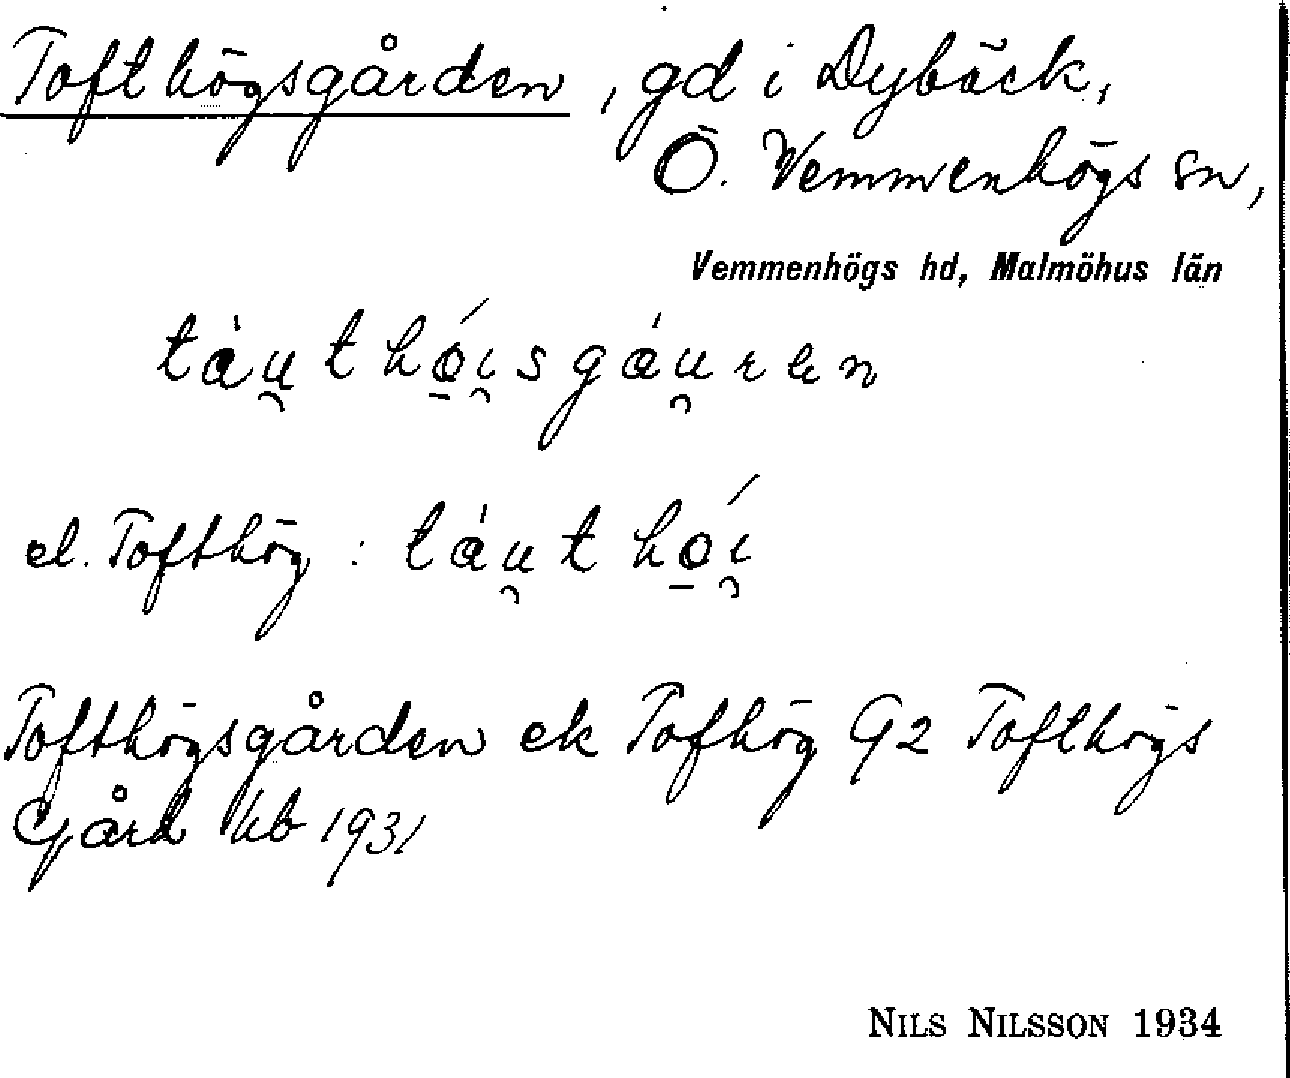 Tofthögsgården, gd i Dybäck,
Ö. Vemmenhögs sn,
Vemmenhögs hd, Malmöhus län
tàu̯t hǫ́i̯sgáu̯ren
el. Tofthög: tàu̯t hǫ́i̯
Tofthögsgården ek Tofhög G2 Tofthögs
Gård kb 1931
NILS NILSSON 1934